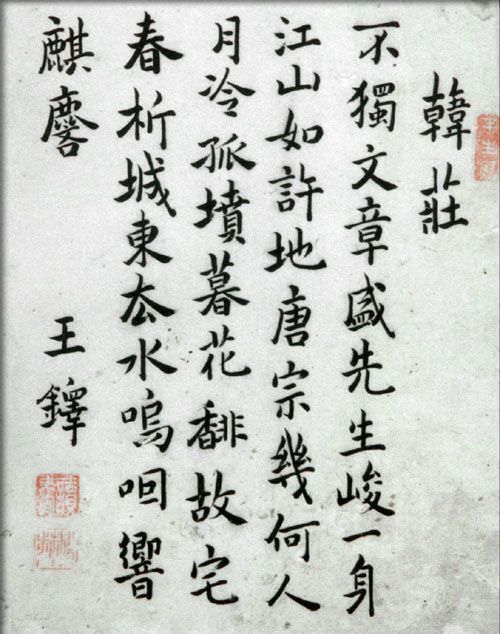 韓莊
不獨文章盛先生峻一身
江山如許地唐宗幾何人
月冷孤墳暮花馡故宅
春析城東厺水嗚咽響
麒麐
王鐸